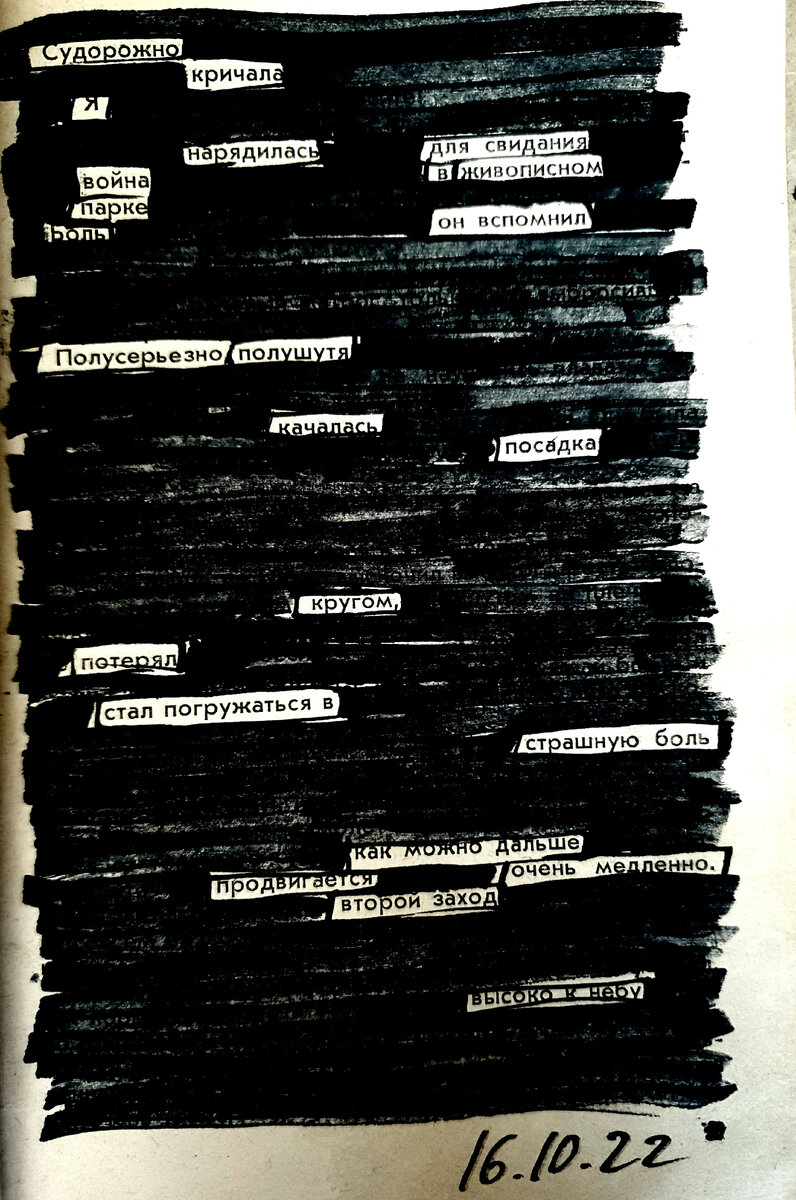 Судорожно
кричала
Я
нарядилась для свидания
война в живописном
парке
боль он вспомнил
Полусерьезно полушутя
качалась
посадка
кругом,
потерял
стал погружаться в
страшную боль
как можно дальше
продвигается очень медленно.
второй заход
высоко к небу
16.10.22